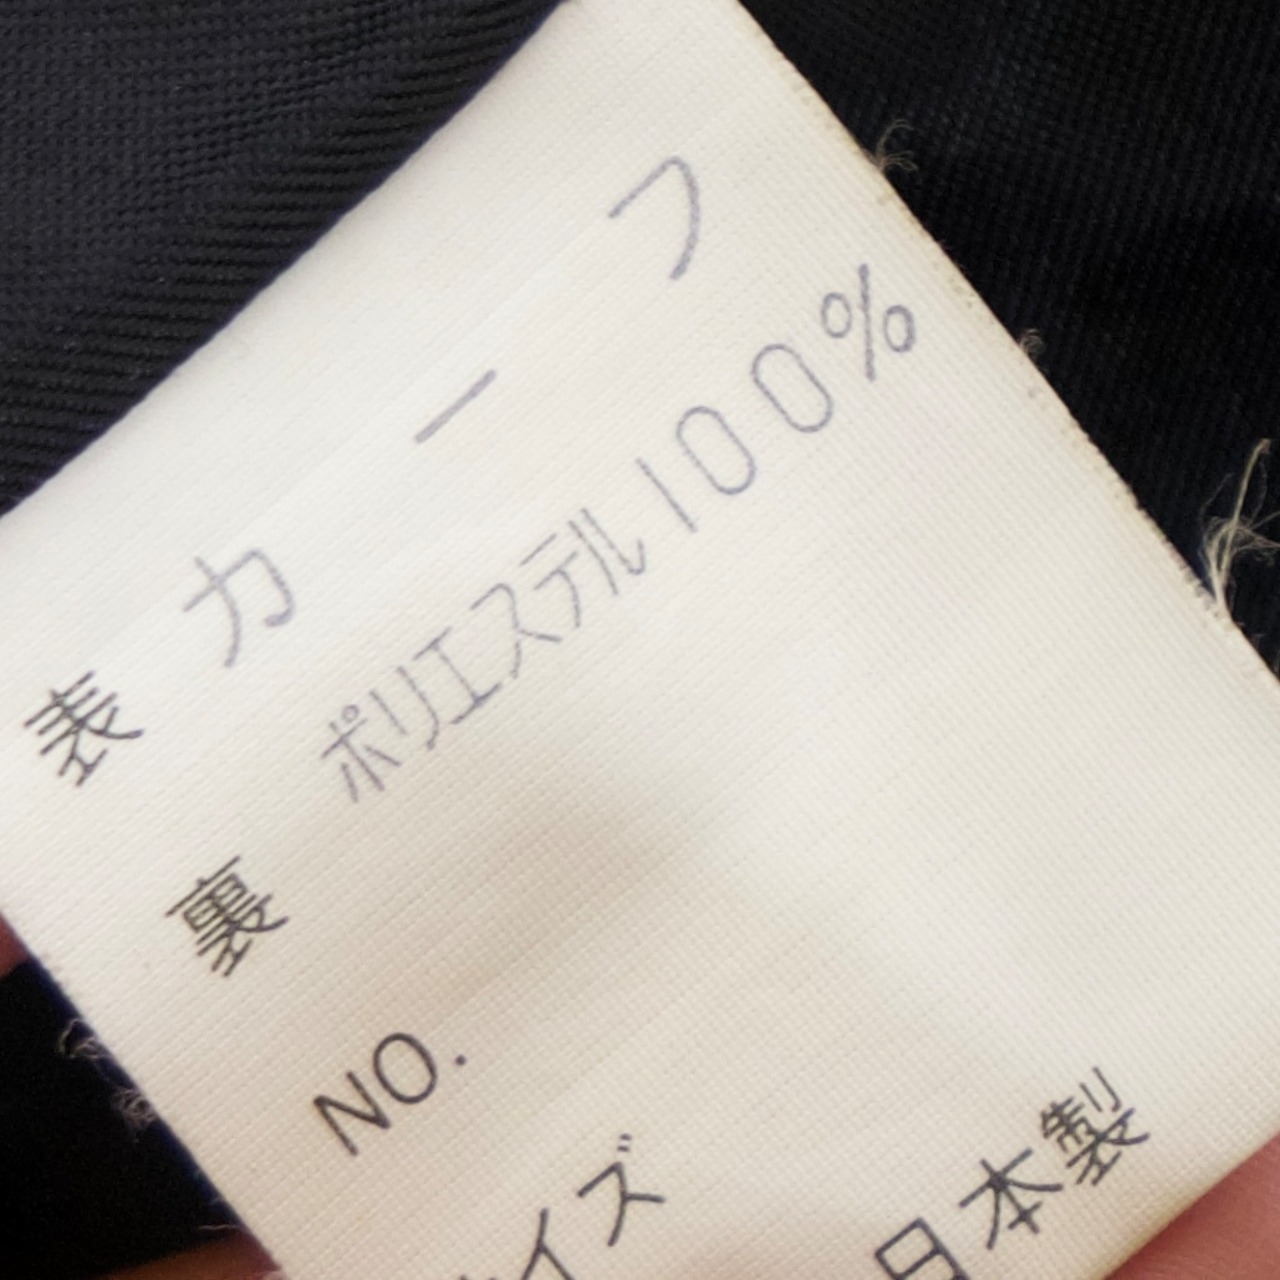 表 カーフ
ポリエステル100%
裏
NO.
サイズ 日本製